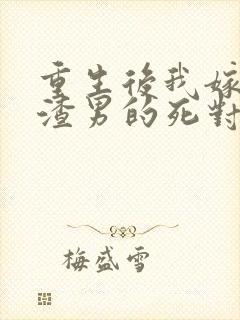 重生後我嫁
渣男的死對
梅盛雪